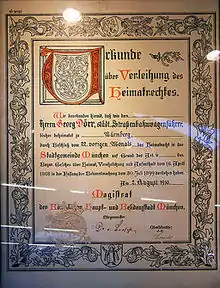 Urkunde
über Verleihung des
Heimatrechtes.
Wir beurkunden hiemit, daß wir dem
Herrn Georg Dörr, städt. Straßenbahnwagenführer,
bisher beheimatet in Nürnberg,
durch Beschluß vom 22. vorigen Monats das Heimatrecht in der
Stadtgemeinde München auf Grund des Art.
über Heimat, Verehelichung und Aufenthalt vom 16. April
1868 in der Fassung der Bekanntmachung vom 30. Juli 1899 verliehen haben.
Am 2. August 1910.
Magistrat
der Kgl. Haupt- und Residenzstadt München.
Bürgermeister: